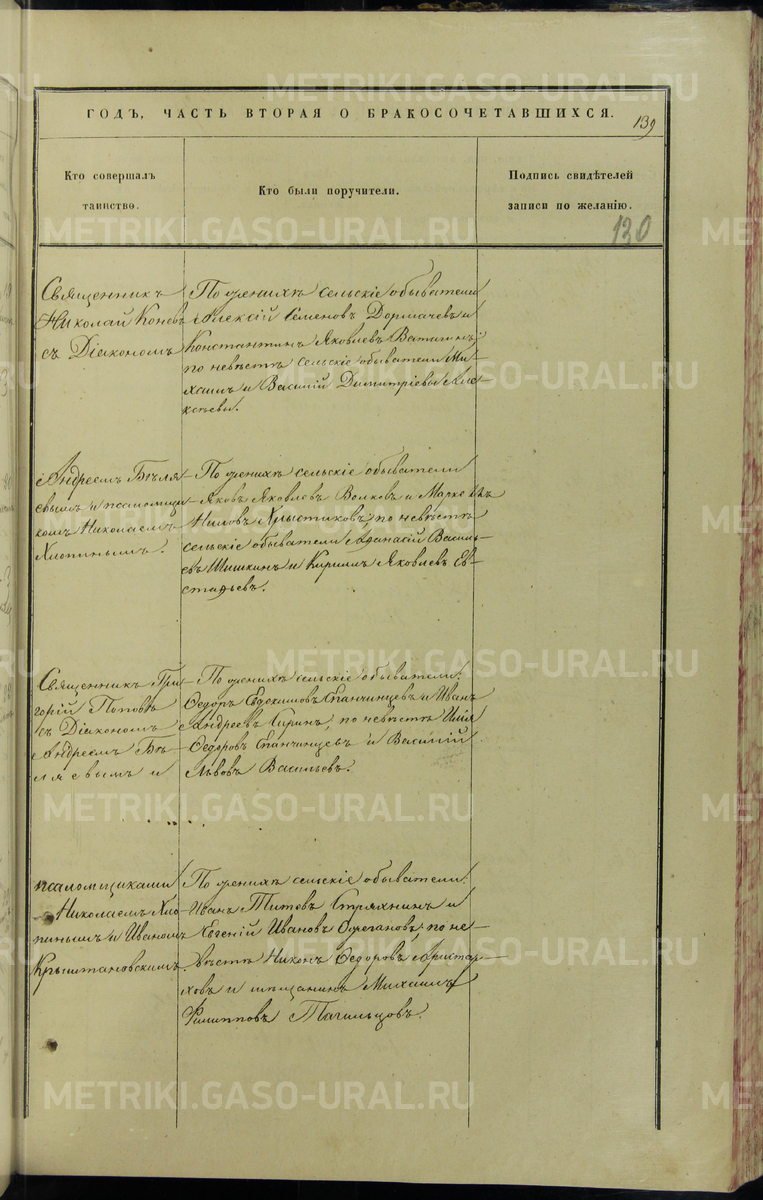 METRIKI.GASO-URAL.RU
ГОДЪ, ЧАСТЬ ВТОРАЯ О БРАКОСОЧЕТАВШИХСЯ.
139
Кто совершалъ
таинство.
Кто были поручители.
Подпись свидѣтелей
записи по желанію.
130
Священникъ
Николай Коневъ
съ Діакономъ
По женихѣ сельскіе обыватели
Алексій Семеновъ Дормачевъ и
Константинъ Яковлевъ Ватагинъ;
по невѣстѣ сельскіе обыватели Ми-
хаилъ и Василій Димитріевы Але-
ксѣевы.
Андреемъ Бѣля-
евымъ и псаломщи-
комъ Николаемъ
Хлопинымъ.
По женихѣ сельскіе обыватели
Яковъ Яковлевъ Волковъ и Марко
Ниловъ Хрыстиковъ; по невѣстѣ
сельскіе обыватели Афанасій Василь-
евъ Шишкинъ и Кириллъ Яковлевъ Ев-
стафьевъ.
Священникъ Гри-
горій Поповъ
съ Діакономъ
Андреемъ Бѣ-
ляевымъ и
По женихѣ сельскіе обыватели:
Ѳедоръ Евдокимовъ Епанчинцевъ и Иванъ
Андреевъ Киринъ; по невѣстѣ Илія
Ѳедоровъ Епанчинцевъ и Василій
Львовъ Васильевъ.
псаломщиками
Николаемъ Хло-
пинымъ и Иваномъ
Крыштановскимъ.
По женихѣ сельскіе обыватели:
Иванъ Титовъ Стряхнинъ и
Евгеній Ивановъ Ожегановъ; по не-
вѣстѣ Никонъ Ѳедоровъ Аристар-
ховъ и мѣщанинъ Михаилъ
Филипповъ Тагильцовъ.